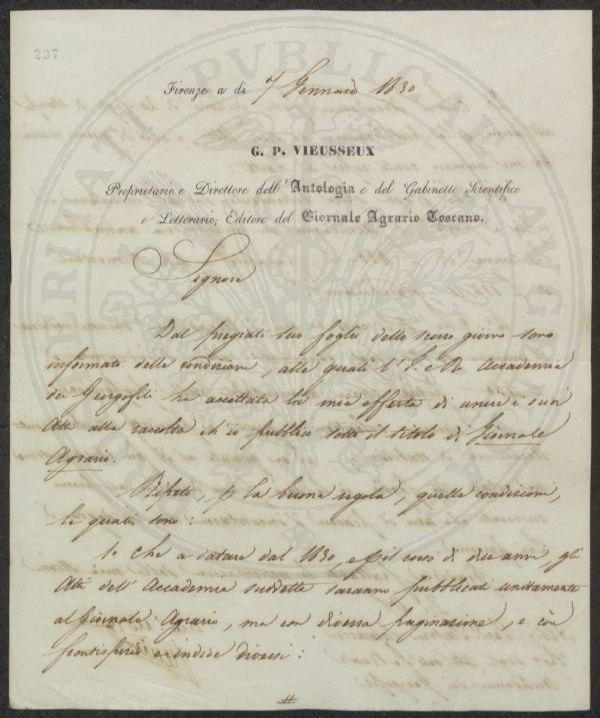 207
Firenze a dì 7 Gennaio 1830
G. P. VIEUSSEUX
Proprietario e Direttore dell'Antologia e del Gabinetto Scientifico
e Letterario; Editore del Giornale Agrario Toscano.
Signore
Dal pregiato suo foglio dello scorso giorno sono
informato delle condizioni, alle quali l'I. e R. Accademia
dei Georgofili ha accettata la mia offerta di unire i suoi
Atti alla raccolta ch'io pubblico sotto il titolo di Giornale
Agrario.
Ripeto, p. la buona regola, quelle condizioni,
le quali sono:
1o. che a datare dal 1830, e p. il corso di due anni, gli
Atti dell'Accademia suddetta saranno pubblicati unitamente
al Giornale Agrario, ma con diversa paginazione, e con
frontispizio e indice diversi:
#